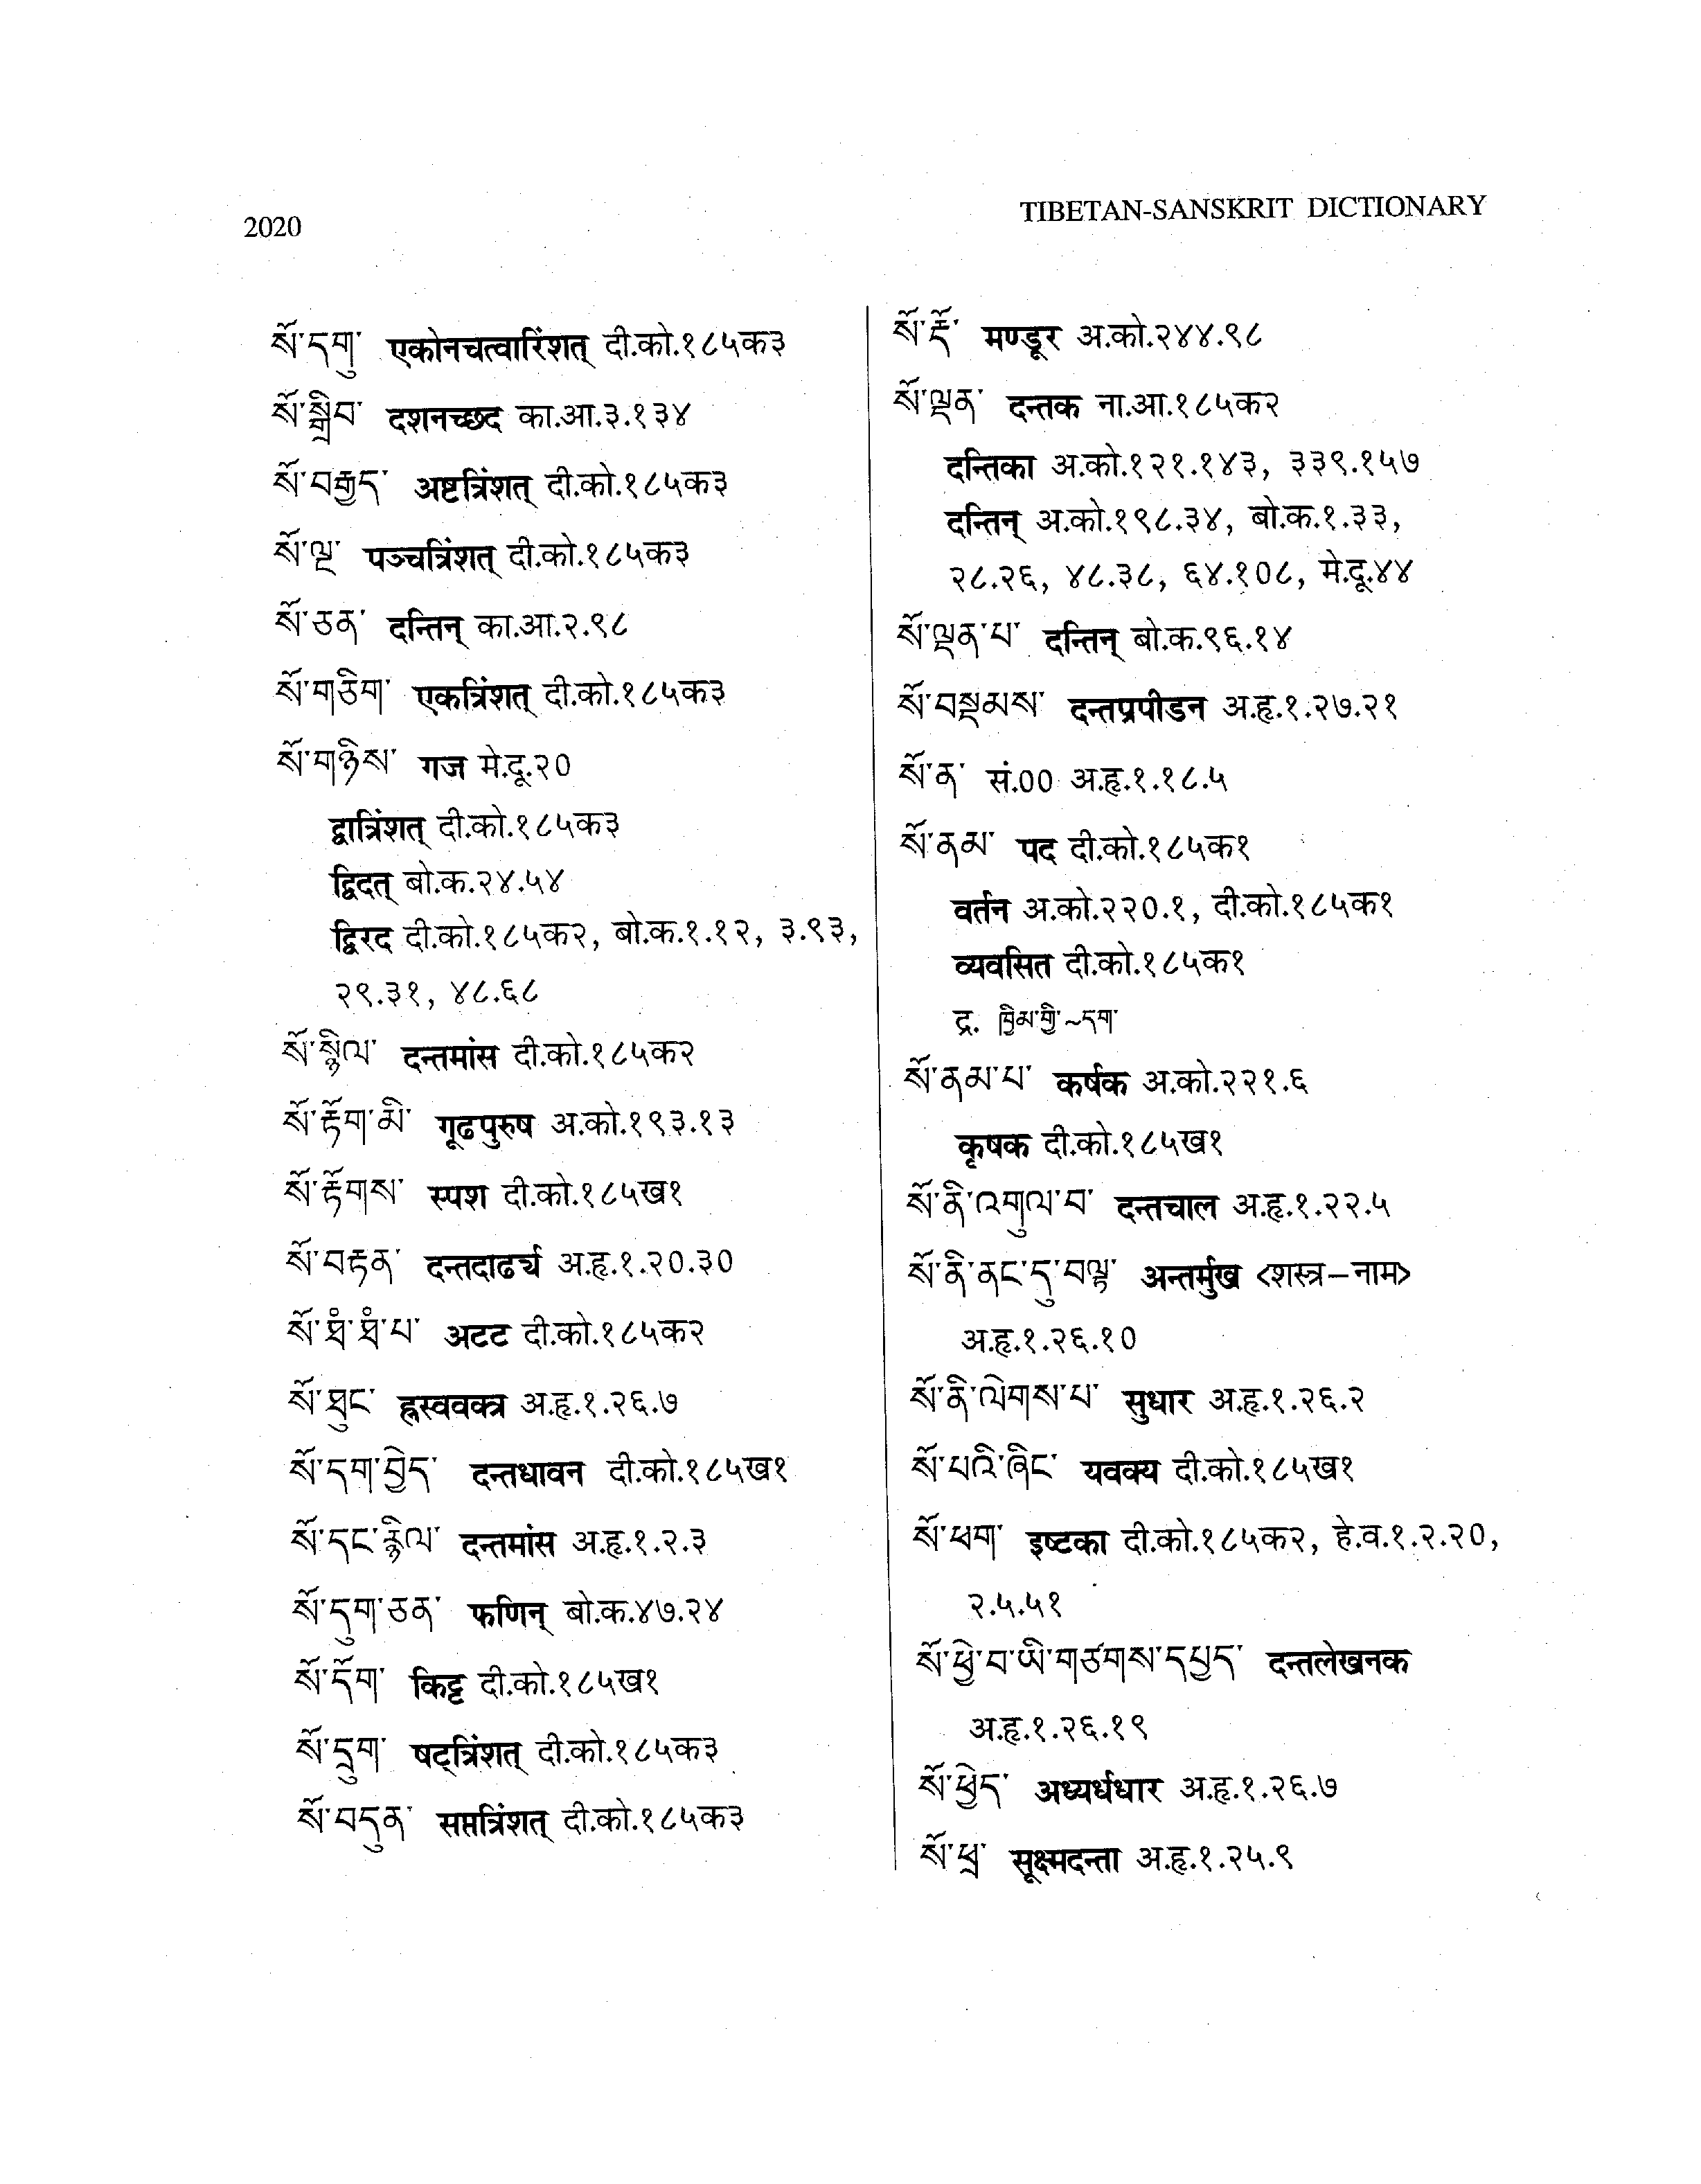 2020
TIBETAN-SANSKRIT DICTIONARY
སོ་དགུ་ एकोनचत्वारिंशत् दी.को.१८५क३
སོ་སྒྲིབ་ दशनच्छद का.आ.३.१३४
སོ་བརྒྱད་ अष्टत्रिंशत् दी.को.१८५क३
སོ་ལྔ་ पञ्चत्रिंशत् दी.को.१८५क३
སོ་ཅན་ दन्तिन् का.आ.२.९८
སོ་གཅིག་ एकत्रिंशत् दी.को.१८५क३
སོ་གཉིས་ गज मे.दू.२०
द्वात्रिंशत् दी.को.१८५क३
द्विदत् बो.क.२४.५४
द्विरद दी.को.१८५क२, बो.क.१.१२, ३.९३,
२९.३१, ४८.६८
སོ་སྙིལ་ दन्तमांस दी.को.१८५क२
སོ་རྟོག་མི་ गूढपुरुष अ.को.१९३.१३
སོ་རྟོགས་ स्पश दी.को.१८५ख१
སོ་བརྟན་ दन्तदार्ढ्य अ.हृ.१.२०.३०
སོ་ཐཾ་ཐཾ་པ་ अटट दी.को.१८५क२
སོ་ཐུང་ ह्रस्ववक्त्र अ.हृ.१.२६.७
སོ་དག་བྱེད་ दन्तधावन दी.को.१८५ख१
སོ་དང་རྙིལ་ दन्तमांस अ.हृ.१.२.३
སོ་དུག་ཅན་ फणिन् बो.क.४७.२४
སོ་དོག་ किट्ट दी.को.१८५ख१
སོ་དྲུག་ षट्त्रिंशत् दी.को.१८५क३
སོ་བདུན་ सप्तत्रिंशत् दी.को.१८५क३
སོ་རྡོ་ मण्डूर अ.को.२४४.९८
སོ་ལྡན་ दन्तक ना.आ.१८५क२
दन्तिका अ.को.१२१.१४३, ३३९.१५७
दन्तिन् अ.को.१९८.३४, बो.क.१.३३,
२८.२६, ४८.३८, ६४.१०८, मे.दू.४४
སོ་ལྡན་པ་ दन्तिन् बो.क.९६.१४
སོ་བསྡམས་ दन्तप्रपीडन अ.हृ.१.२७.२१
སོ་ན་ सं.०० अ.हृ.१.१८.५
སོ་ནམ་ पद दी.को.१८५क१
वर्तन अ.को.२२०.१, दी.को.१८५क१
व्यवसित दी.को.१८५क१
द्र. ཁྱིམ་གྱི་~དག་
སོ་ནམ་པ་ कर्षक अ.को.२२१.६
कृषक दी.को.१८५ख१
སོ་ནི་འགུལ་བ་ दन्तचाल अ.हृ.१.२२.५
སོ་ནི་ནང་དུ་བལྟ་ अन्तर्मुख <शस्त्र-नाम>
अ.हृ.१.२६.१०
སོ་ནི་ལེགས་པ་ सुधार अ.हृ.१.२६.२
སོ་པའི་ཞིང་ यवक्य दी.को.१८५ख१
སོ་ཕག་ इष्टका दी.को.१८५क२, हे.व.१.२.२०,
२.५.५१
སོ་ཕྱེ་བ་ཡི་གཙགས་དཔྱད་ दन्तलेखनक
अ.हृ.१.२६.१९
སོ་ཕྱེད་ अध्यर्धधार अ.हृ.१.२६.७
སོ་ཕྲ་ सूक्ष्मदन्ता अ.हृ.१.२५.९